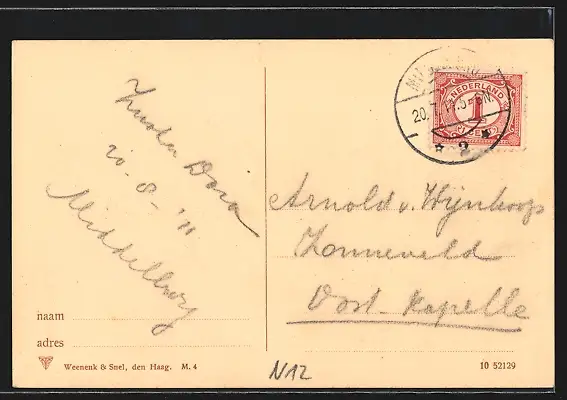 Zuster Dora
20-8-'11
Middelburg
naam
adres
Weenenk & Snel, den Haag. M. 4
NEDERLAND
1
CENT
2
Arnold v. Wijnkoop
Zonneveld
Oost-Kapelle
N12
10 52129